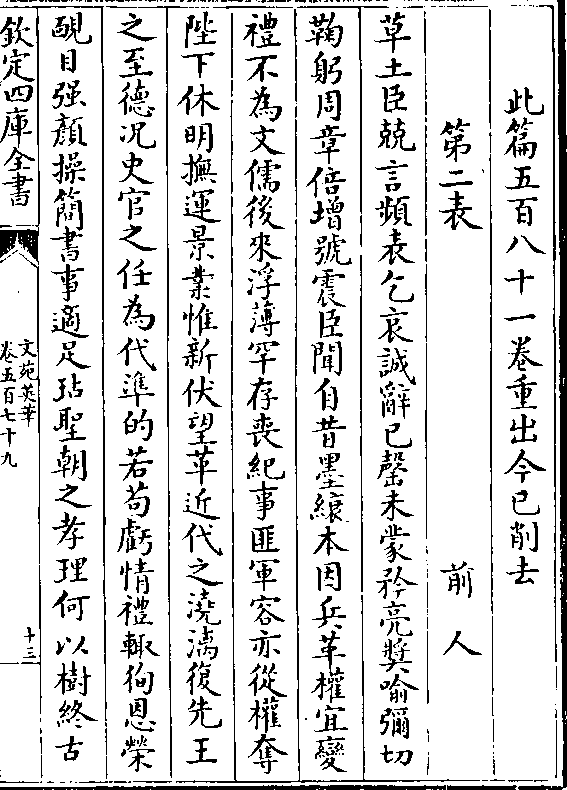 此篇五百八十一卷重出今已削去
第二表 前人
草土臣兢言頻表乞哀誠辭已罄未蒙矜亮奬喻彌切
鞠躬周章倍增號震臣聞自昔墨縗本因兵革權宜變
禮不為文儒後來浮薄罕存喪紀事匪軍容亦從權奪
陛下休明撫運景業惟新伏望革近代之澆漓復先王
之至德况史官之任為代準的若苟虧情禮輙徇恩榮
靦目强顔操簡書事適足玷聖朝之孝理何以樹終古
欽定四庫全書
文苑英華
卷五百七十九
十三